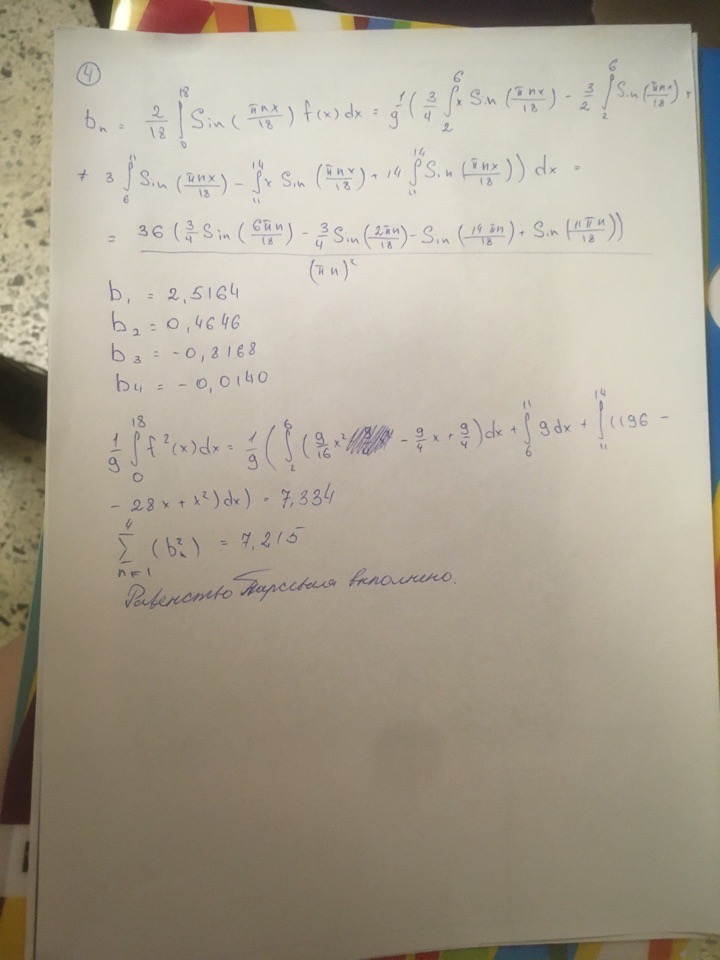 ④
b_n = 2/18 ∫_0^18 Sin(πnx/18) f(x)dx = 1/9 (3/4 ∫_2^6 x Sin(πnx/18) - 3/2 ∫_2^6 Sin(πnx/18) +
+ 3 ∫_6^11 Sin(πnx/18) - ∫_11^14 x Sin(πnx/18) + 14 ∫_11^14 Sin(πnx/18)) dx =
= 36(3/4 Sin(6πn/18) - 3/4 Sin(2πn/18) - Sin(14πn/18) + Sin(11πn/18)) / (πn)²
b_1 = 2,5164
b_2 = 0,4646
b_3 = -0,8168
b_4 = -0,0140
1/9 ∫_0^18 f²(x)dx = 1/9 (∫_2^6 (9/16 x² - 9/4 x + 9/4)dx + ∫_6^11 9dx + ∫_11^14 (196 -
- 28x + x²)dx) = 7,334
∑_{n=1}^4 (b_n²) = 7,215
Равенство Парсеваля выполнено.